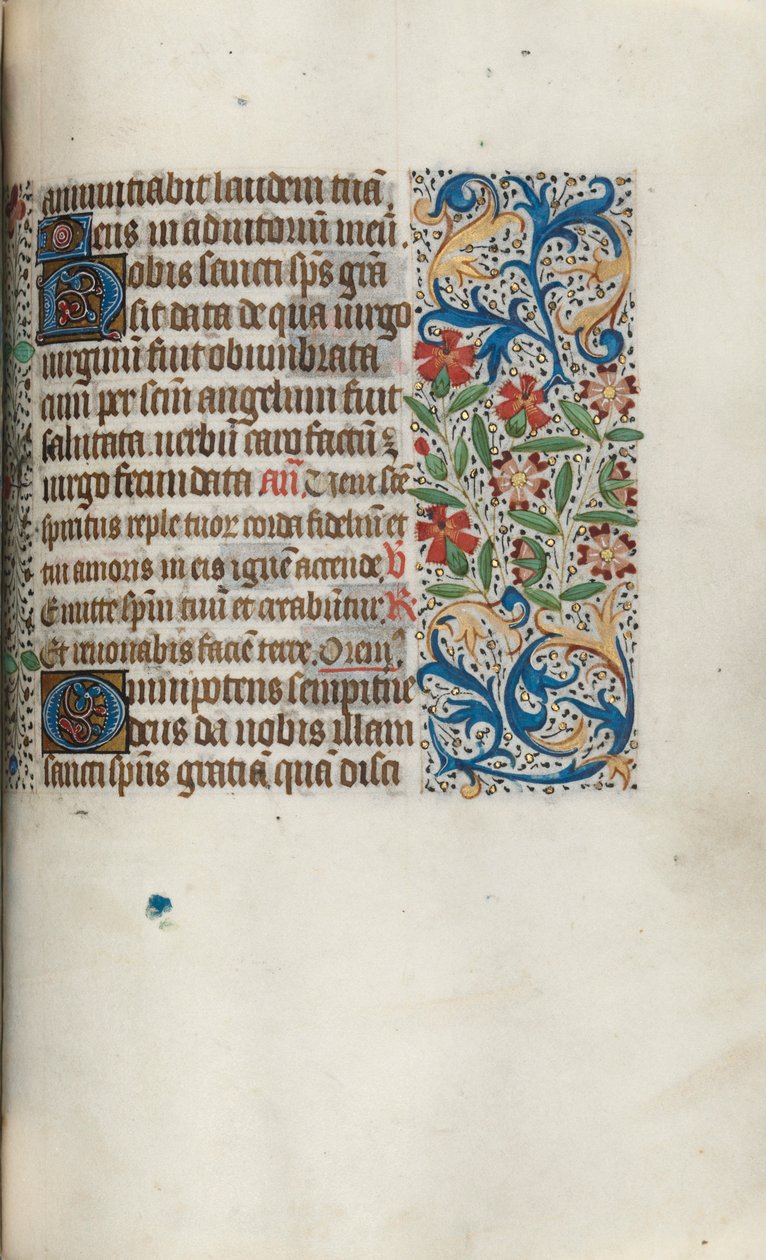 annuntiabit laudem tuā.
Deus in adiutoriū meū.
Nobis sancti sp̄s grā
sit data de qua uirgo
uirginū fuit obumbrata
cum per sctm̄ angelum fuit
salutata. uerbū caro factū ⁊
uirgo fecundata añ. Veni sctē
spiritus reple tuoꝝ corda fideliū et
tui amoris in eis ignē accende. V
Emitte spm̄ tuū et creabūtur. R
Et renouabis faciē terre. Oremꝰ
Omnipotens sempitnē
deus da nobis illam
sancti spūs gratiā quā disci